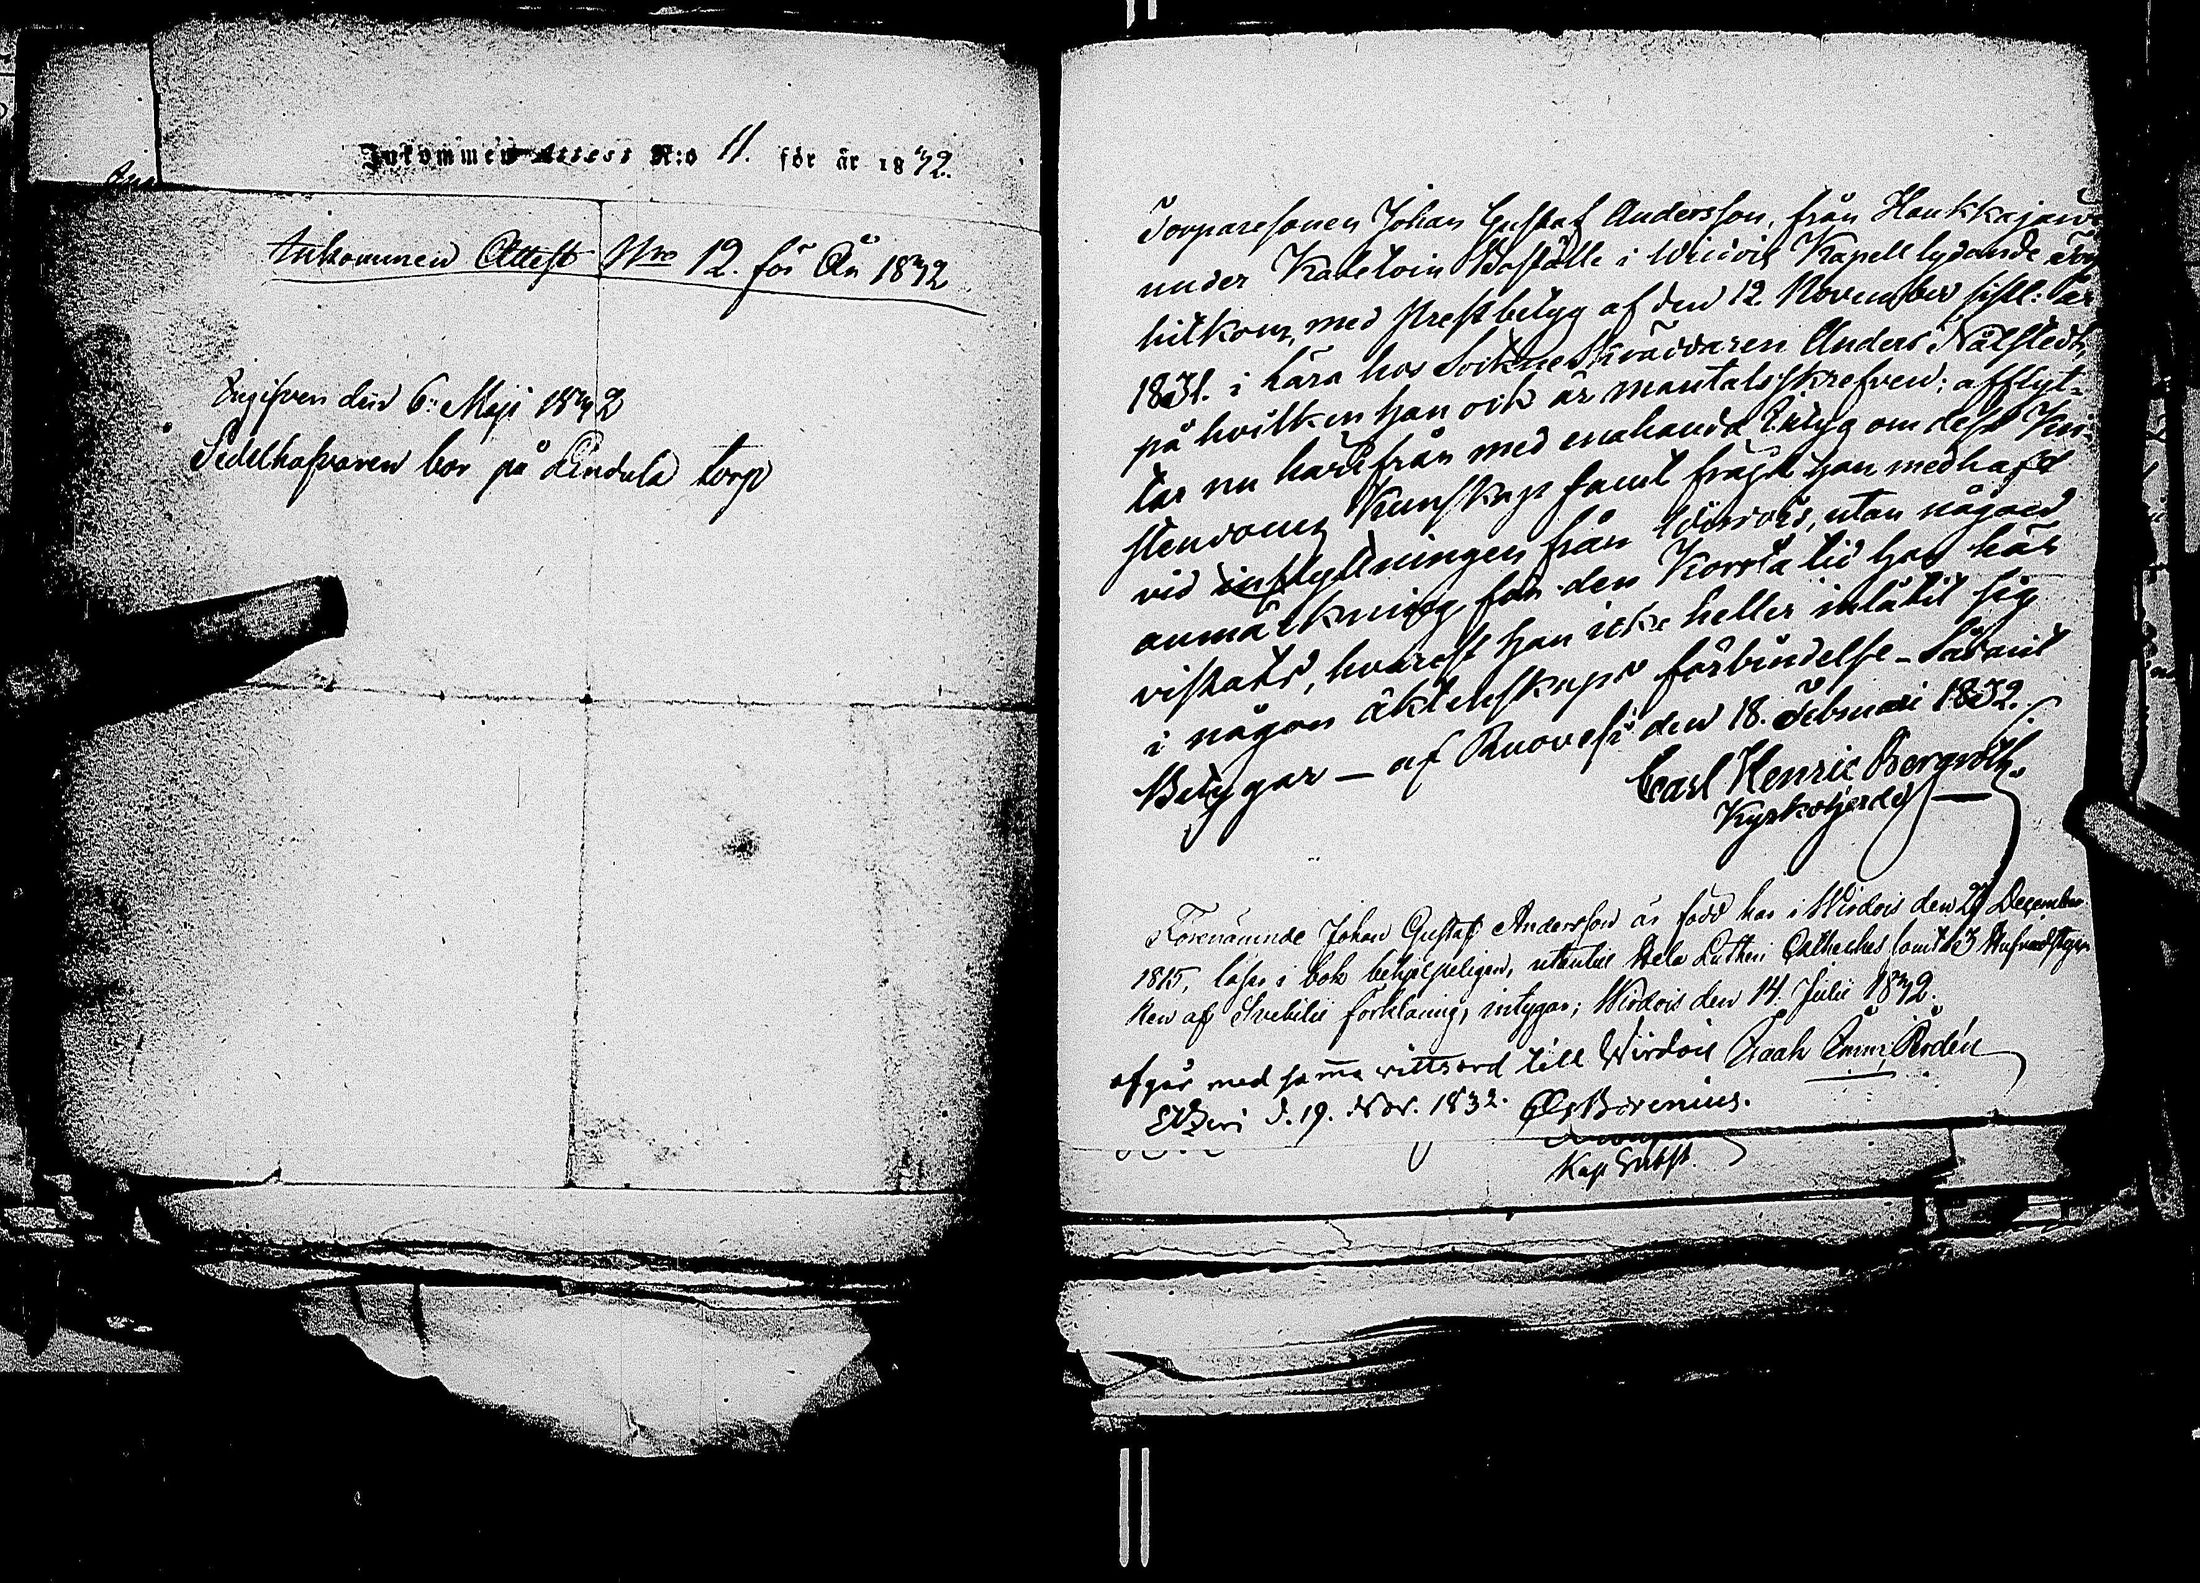 Inkommen Attest N:o 11. för år 1832.
Inkommen Attest Nro 12. för År 1832
Ingifven den 6 Maji 1832
Sedelhafvaren bor på Lindula torp
Torparesonen Johan Gustaf Andersson, från Haukkajarvi
under Kaleton Boställe i Wirdois Kapell lydande Torp
hitkom, med Prestbetyg af den 12 November sistl: år
1831. i hära hos Sockne Skräddaren Anders Nålstedt,
på hvilken han ock är mantalsskrefven; afflyt-
tar nu härifrån med enahanda Intyg om dess Kri-
stendoms Kunskap samt frägd han medhaft
vid inflyttningen från Wirdois, utan någon
anmärkning för den Korrta tid han här
vistats, hvarest han icke heller inlåtit sig
i någon äktenskaps förbindelse – Sådant
Betygar – af Ruovesi den 18. Februari 1832.
Carl Henric Bergroth.
Kyrkoherde
Förenämnde Johan Gustaf Andersson är född har i Wirdois den 21 December
1815, läser i bok behjelpeligen, utantil Hela Lutheri Catheches samt de 3 Hufvudstyc-
ken af Svebilii förklaring, intygar; Wirdois den 14. Julii 1832.
afgår med samma vittsord till Wirdois Isaak Rordén
d. 19. Nov. 1832. Borenius.
Kap Subst.